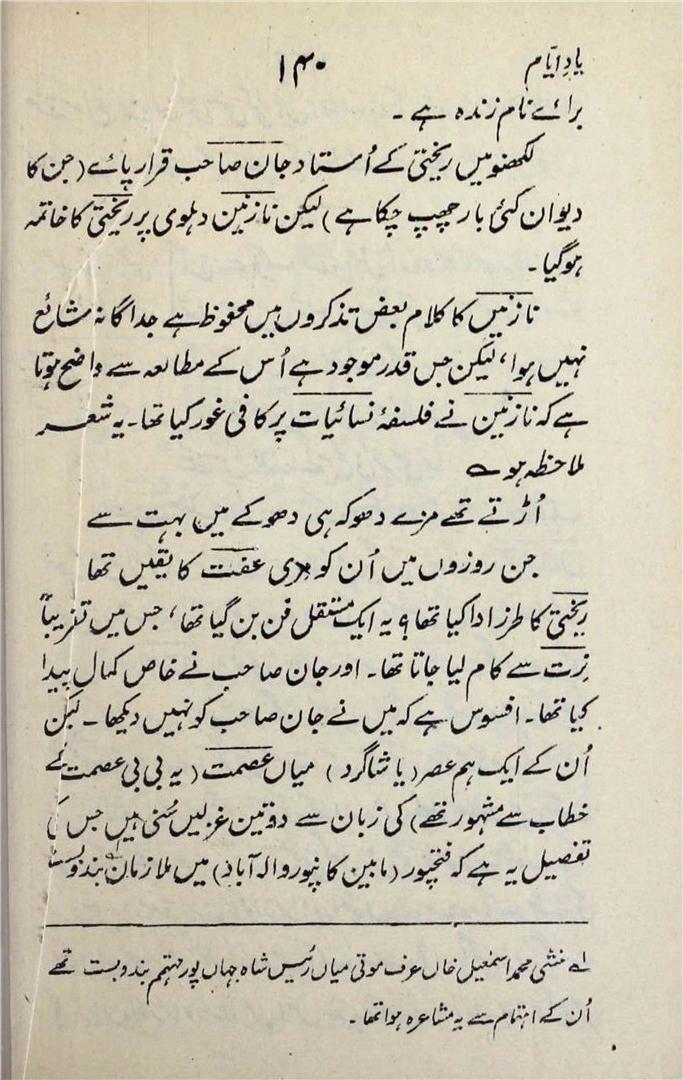 یادِ ایّام
۱۴۰
برائے نام زندہ ہے ۔
لکھنو میں ریختی کے اُستاد جان صاحب قرار پائے (جن کا
دیوان کئی بار چھپ چکا ہے) لیکن نازنین دہلوی پر ریختی کا خاتمہ
ہوگیا ۔
نازنین کا کلام بعض تذکروں میں محفوظ ہے جداگانہ شائع
نہیں ہوا، لیکن جس قدر موجود ہے اُس کے مطالعہ سے واضح ہوتا
ہے کہ نازنین نے فلسفۂ نسائیات پر کافی غور کیا تھا ۔ یہ شعر
ملاحظہ ہو ؎
اُڑتے تھے مزے دھوکہ ہی دھوکے میں بہت سے
جن روزوں میں اُن کو مری عفت کا یقیں تھا
ریختی کا طرز ادا کیا تھا؟ یہ ایک مستقل فن بن گیا تھا، جس میں تقریباً
نرت سے کام لیا جاتا تھا ۔ اور جان صاحب نے خاص کمال پیدا
کیا تھا ۔ افسوس ہے کہ میں نے جان صاحب کو نہیں دیکھا ۔ لیکن
اُن کے ایک ہم عصر (یا شاگرد) میاں عصمت (یہ بی بی عصمت کے
خطاب سے مشہور تھے) کی زبان سے دو تین غزلیں سُنی ہیں جس کی
تفصیل یہ ہے کہ فتحپور (مابین کانپور و الہ آباد) میں ملازمان بندوبست
لے منشی محمد اسمٰعیل خاں عرف موتی میاں رئیس شاہ جہاں پور مہتمم بندوبست تھے
اُن کے اہتمام سے یہ مشاعرہ ہوا تھا ۔